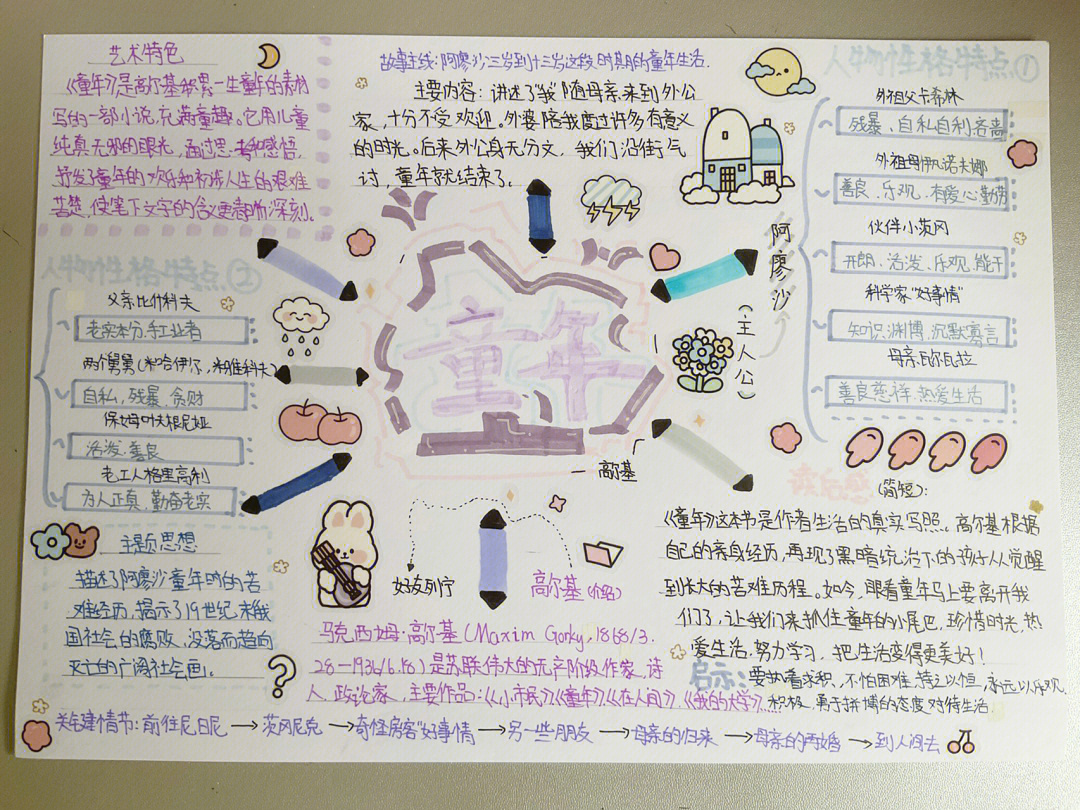 艺术特色
《童年》是高尔基积累一生童年的素材
写的一部小说,充满童趣。它用儿童
纯真无邪的眼光,通过思考和感悟,
抒发了童年的欢乐和初涉人生的艰难
苦楚,使笔下文字的含
深刻。
故事主线:阿廖沙三岁到十三岁这段时期的童年生活.
主要内容:讲述了“我”随母亲来到外公
家,十分不受欢迎。外婆陪我度过许多有意义
的时光。后来外公身无分文,我们沿街乞
讨,童年就结束了。
人物性格特点①
外祖父卡希林
残暴、自私自利吝啬
外祖母伊凡诺夫娜
善良、乐观、有爱心勤劳
伙伴小茨冈
开朗、活泼、乐观、能干
科学家“好事情”
知识渊博,沉默寡言
母亲瓦尔瓦拉
善良慈祥,热爱生活
阿廖沙
(主人公)
人物性格特点②
父亲
科夫
老实本分,手工业者
两个舅舅(米哈伊尔,雅科夫)
自私,残暴、贪财
保姆叶夫根尼娅
活泼、善良
老工人格里高利
为人正真,勤奋老实
童年
高尔基
主题思想
描述了阿廖沙童年时的苦
难经历,揭示了19世纪末俄
国社会的腐败,没落而趋向
灭亡的广阔社会画。
好友列宁
高尔基(介绍)
马克西姆·高尔基(Maxim Gorky,1868/3.
28—1936/6.18)是苏联伟大的无产阶级作家,诗
人,政论家,主要作品:《小市民》《童年》《在人间》、《我的大学》……
读后感(简短):
《童年》这本书是作者生活的真实写照。高尔基根据
自己的亲身经历,再现了黑暗统治下的孩子从觉醒
到长大的苦难历程。如今,眼看童年马上要离开我
们了,让我们来抓住童年的小尾巴,珍惜时光,热
爱生活,努力学习,把生活变得更美好!
启示:要执着求积,不怕困难,持之以恒,永远以乐观.
积极、勇于拼博的态度对待生活
关键情节:前往尼日尼→茨冈尼克→奇怪房客“好事情”→另一些朋友→母亲的归来→母亲的再婚→到人间去